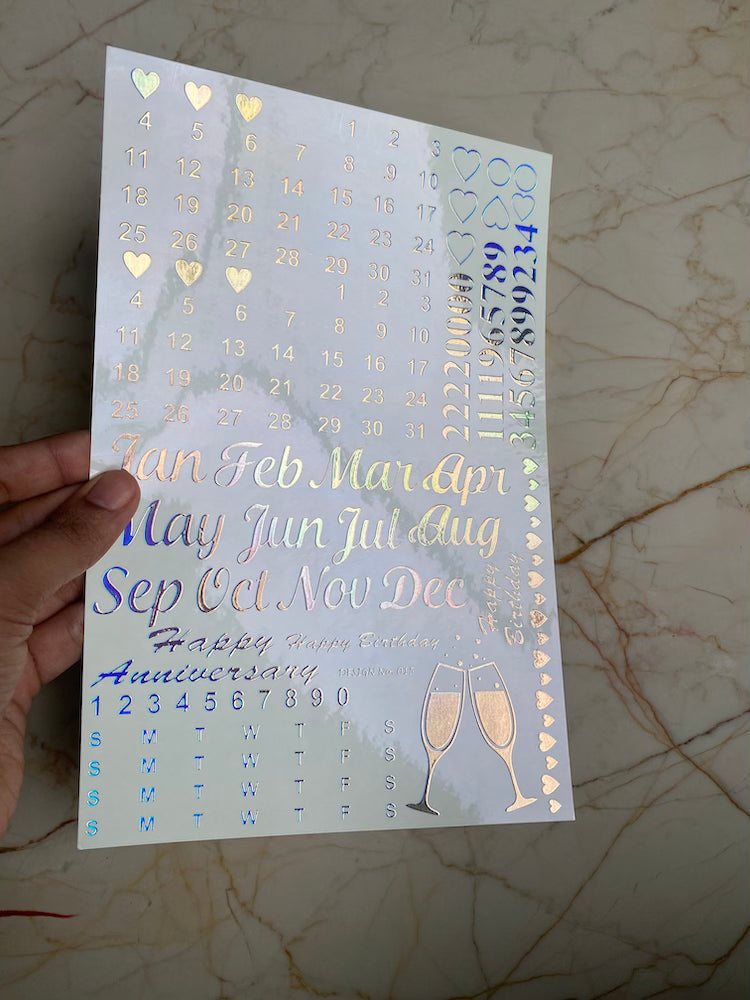 1 2 3
4 5 6 7 8 9 10
11 12 13 14 15 16 17
18 19 20 21 22 23 24
25 26 27 28 29 30 31
1 2 3
4 5 6 7 8 9 10
11 12 13 14 15 16 17
18 19 20 21 22 23 24
25 26 27 28 29 30 31
22220000
1111965789
34567899234
Jan Feb Mar Apr
May Jun Jul Aug
Sep Oct Nov Dec
Happy
Birthday
Happy Happy Birthday
Anniversary DESIGN No.
1 2 3 4 5 6 7 8 9 0
S M T W T F S
S M T W T F S
S M T W T F S
S M T W T F S